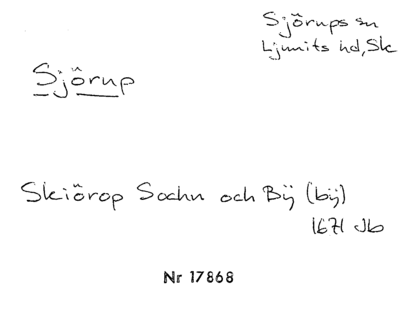 Sjörups sn
Ljunits hd, Sk
Sjörup
Skiörop Sochn och Bÿ (bÿ)
1671 Jb
Nr 17868